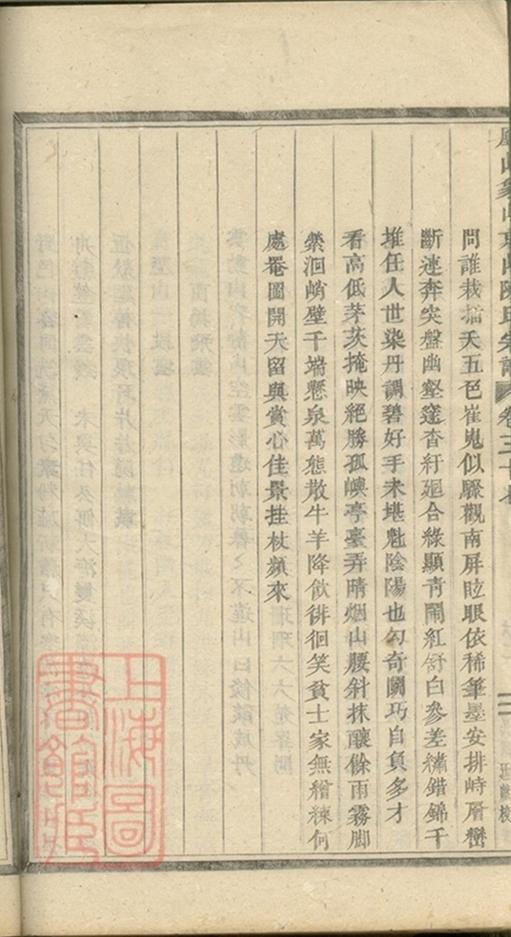 陳氏宗譜 卷三十
問誰栽插天五色崔嵬似驟觀南屏眩眼依稀筆墨安排峙層巒
斷連奔突盤幽壑窪杳紆廻合綠顯青鬧紅舒白參差繡錯錦千
堆任人世染丹調碧好手未堪魁陰陽也勾奇鬬巧自負多才
看高低茅茨掩映絕勝孤嶼亭臺弄晴烟山腰斜抹釀餘雨霧脚
縈洄峭壁千端懸泉萬態散牛羊降飲徘徊笑貧士家無繒練何
處罨圖開天留與賞心佳景挂杖頻來
上海圖書館藏